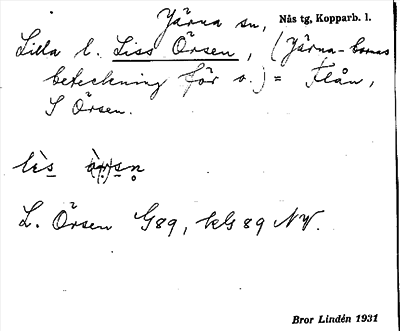 Järna sn, Nås tg, Kopparb. l.
Lilla l. Liss Örsen, (Järna-bornas
beteckning för o.) = Flån,
S Örsen.
lès
L. Örsen G89, kls 89 NV.
Bror Lindén 1931